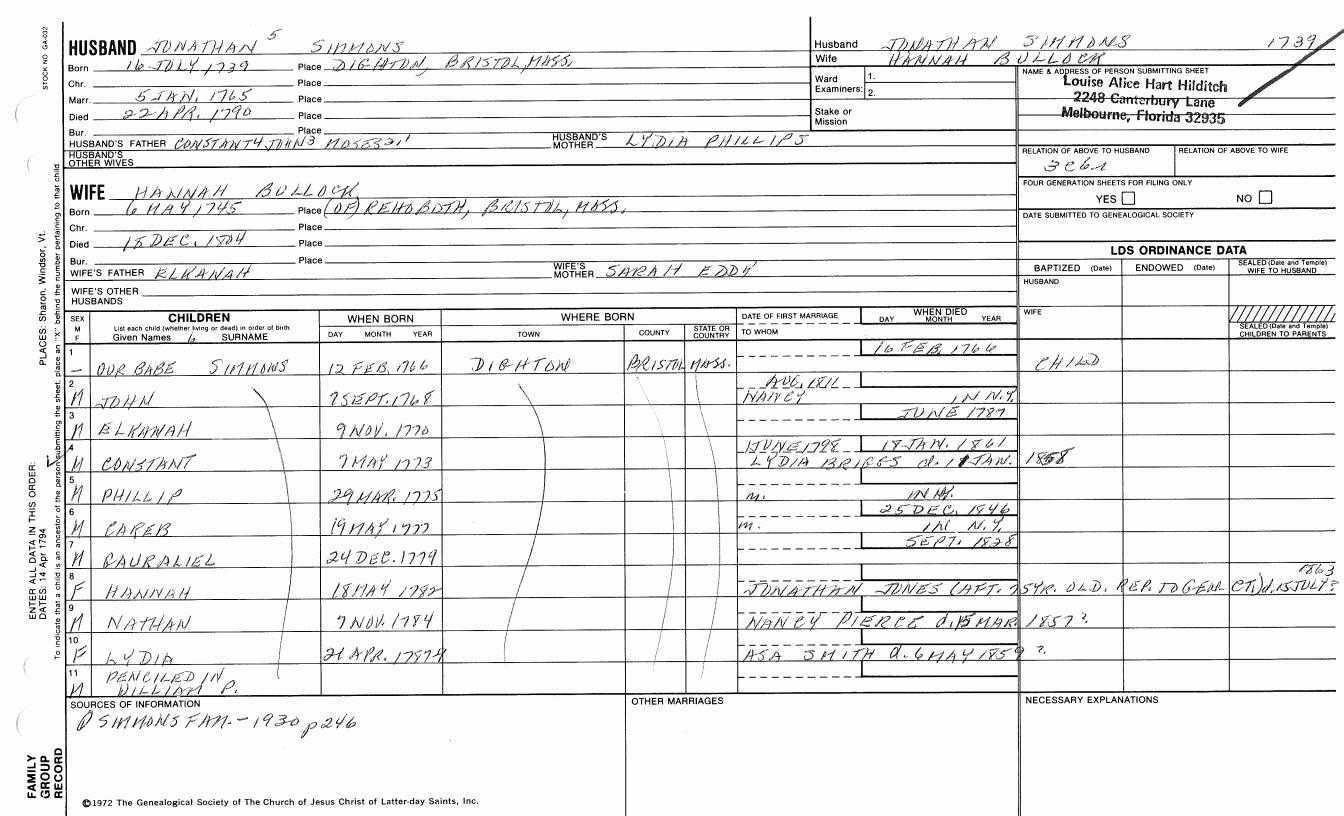 STOCK NO GA-032
HUSBAND JONATHAN 5 SIMMONS
Born 16 JULY, 1739 Place DIGHTON, BRISTOL, MASS.
Chr. Place
Marr. 5 JAN. 1765 Place
Died 22 APR. 1790 Place
Bur. Place
HUSBAND'S FATHER CONSTANT4 JOHN3 MOSES2,1 HUSBAND'S MOTHER LYDIA PHILLIPS
HUSBAND'S OTHER WIVES
Husband JONATHAN SIMMONS 1739
Wife HANNAH BULLOCK
Ward Examiners: 1.
2.
Stake or Mission
NAME & ADDRESS OF PERSON SUBMITTING SHEET
Louise Alice Hart Hilditch
2248 Canterbury Lane
Melbourne, Florida 32935
RELATION OF ABOVE TO HUSBAND RELATION OF ABOVE TO WIFE
FOUR GENERATION SHEETS FOR FILING ONLY
YES NO
DATE SUBMITTED TO GENEALOGICAL SOCIETY
WIFE HANNAH BULLOCK
Born 6 MAY 1745 Place (OF) REHOBOTH, BRISTOL, MASS.
Chr. Place
Died 18 DEC. 1804 Place
Bur. Place
WIFE'S FATHER ELKANAH WIFE'S MOTHER SARAH EDDY
WIFE'S OTHER HUSBANDS
LDS ORDINANCE DATA
BAPTIZED (Date) ENDOWED (Date) SEALED (Date and Temple) WIFE TO HUSBAND
HUSBAND
WIFE
SEALED (Date and Temple) CHILDREN TO PARENTS
SEX M F
CHILDREN
List each child (whether living or dead) in order of birth
Given Names 6 SURNAME
WHEN BORN
DAY MONTH YEAR
WHERE BORN
TOWN COUNTY STATE OR COUNTRY
DATE OF FIRST MARRIAGE
TO WHOM
WHEN DIED
DAY MONTH YEAR
1 – OUR BABE SIMMONS 12 FEB. 1766 DIGHTON BRISTOL MASS. 16 FEB. 1766 CHILD
2 M JOHN 7 SEPT. 1768 AUG, 1811 NANCY IN N.Y.
3 M ELKANAH 9 NOV. 1770 JUNE 1787
4 M CONSTANT 7 MAY 1773 1 JUNE 1798 18 JAN. 1861
LYDIA BRIGGS d. 11 JAN. 1858
5 M PHILLIP 29 MAR. 1775 m. IN NY.
6 M CAREB 19 MAY 1777 25 DEC. 1846 m. IN N.Y.
7 M GAURALIEL 24 DEC. 1779 SEPT. 1828
8 F HANNAH 18 MAY 1782 JONATHAN JONES (AFT. 75YR. OLD. REP. TO GEN. CT.) d. 15 JULY? 1863
9 M NATHAN 7 NOV. 1784 NANCY PIERCE d. 15 MAR 1857?.
10 F LYDIA 21 APR. 1787 ASA SMITH d. 6 MAY 1859 ?.
11 M PENCILED IN
WILLIAM P.
SOURCES OF INFORMATION
SIMMONS FAM. - 1930 p246
OTHER MARRIAGES
NECESSARY EXPLANATIONS
©1972 The Genealogical Society of The Church of Jesus Christ of Latter-day Saints, Inc.
FAMILY GROUP RECORD
ENTER ALL DATA IN THIS ORDER:
DATES: 14 Apr 1794
PLACES: Sharon, Windsor, Vt.
To indicate that a child is an ancestor of the person submitting the sheet, place an "X" behind the number pertaining to that child.